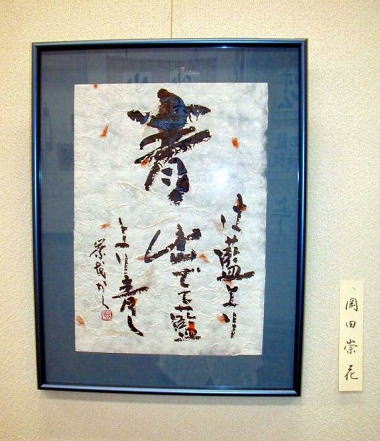 青
は藍より
出でて藍
より青し
岡田崇花